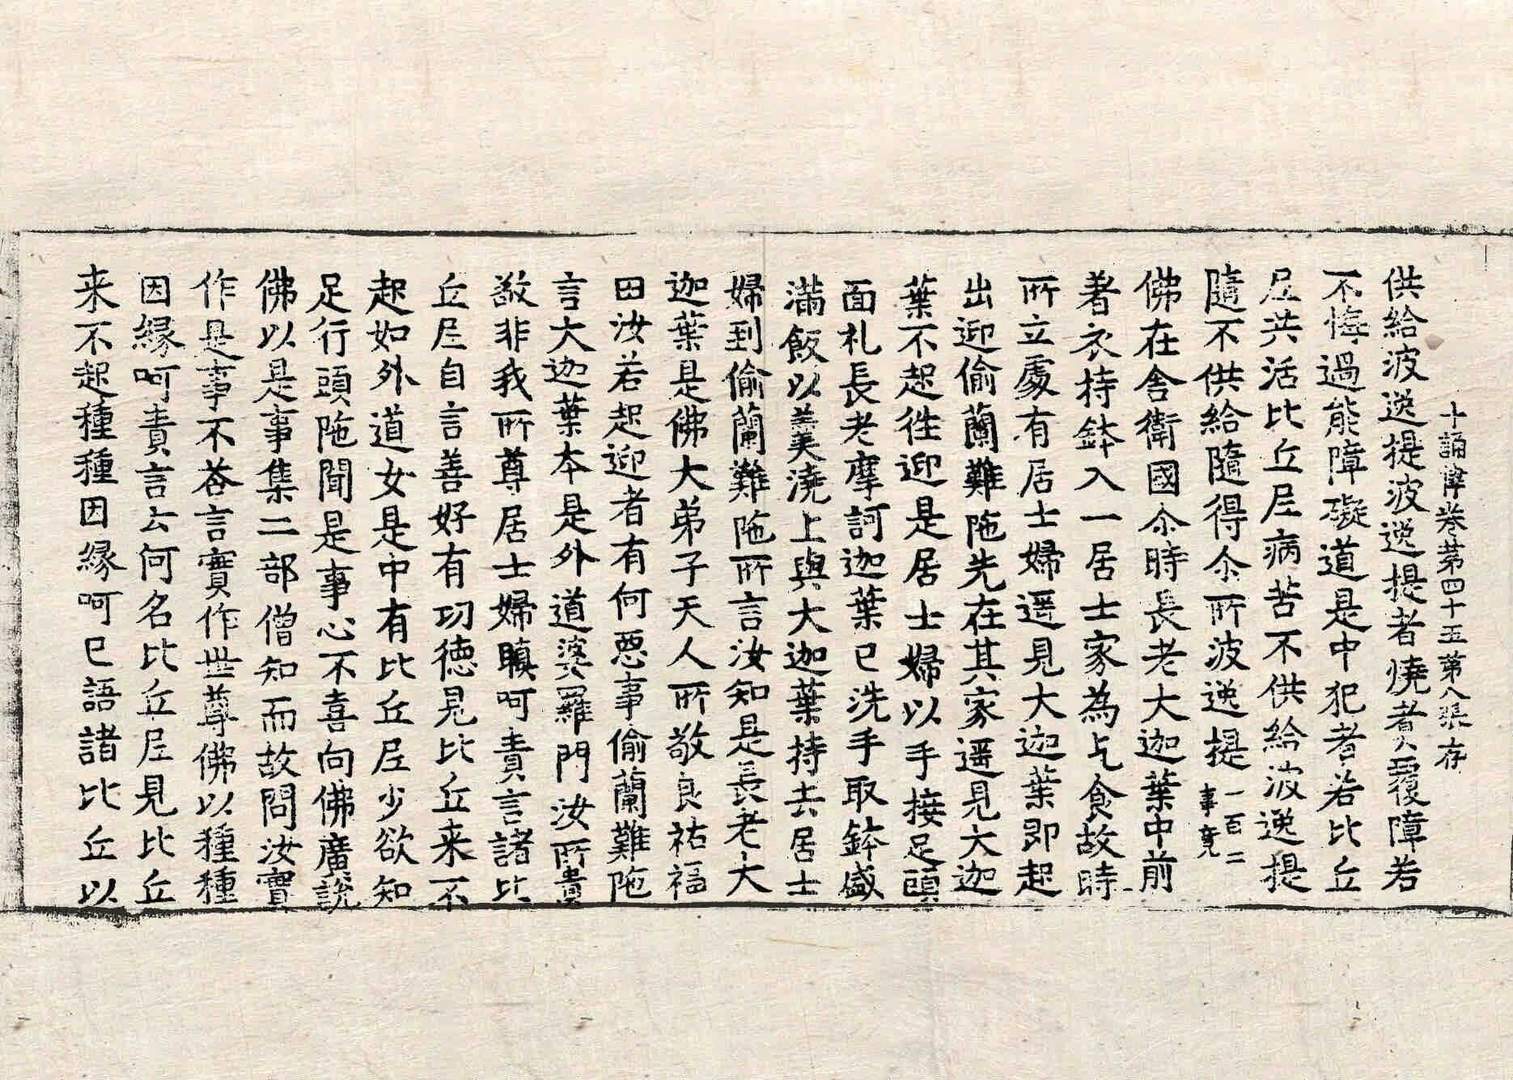 十誦律卷第四十五第八張存
供給波逸提波逸提者燒煑覆障若
不悔過能障礙道是中犯者若比丘
尼共活比丘尼病苦不供給波逸提
隨不供給隨得尒所波逸提一百二事竟
佛在舍衛國尒時長老大迦葉中前
著衣持鉢入一居士家為乞食故時
所立處有居士婦遥見大迦葉即起
出迎偷蘭難陁先在其家遥見大迦
葉不起徃迎是居士婦以手接足頭
面礼長老摩訶迦葉已洗手取鉢盛
滿飯以羹澆上與大迦葉持去居士
婦到偷蘭難陁所言汝知是長老大
迦葉是佛大弟子天人所敬良祐福
田汝若起迎者有何惡事偷蘭難陁
言大迦葉本是外道婆羅門汝所貴
敬非我所尊居士婦瞋呵責言諸比
丘尼自言善好有功德見比丘来不
起如外道女是中有比丘尼少欲知
足行頭陁聞是事心不喜向佛廣說
佛以是事集二部僧知而故問汝實
作是事不荅言實作世尊佛以種種
因縁呵責言云何名比丘尼見比丘
来不起種種因縁呵已語諸比丘以